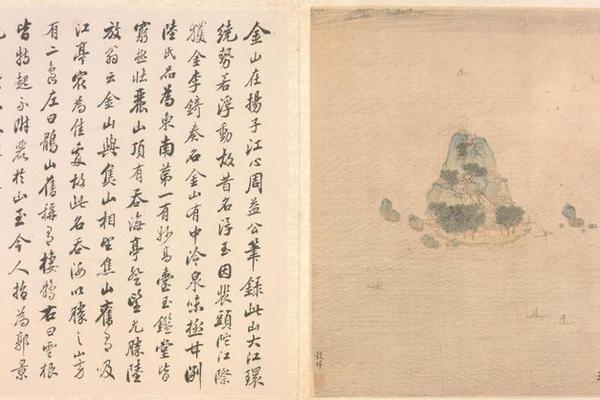 金山在揚子江心周益公筆錄此山大江環
繞勢若浮動故昔名浮玉因裴頭陀江際
獲金李錡奏名金山有中泠泉味極甘洌
陸氏品為東南第一有妙高臺玉鑑堂皆
窮極壯麗山頂有吞海亭登望尤勝陸
放翁云金山與焦山相望焦山舊有吸
江亭最為佳處故此名吞海以勝之山旁
有二島左曰鶻山舊稱有棲鶻右曰雲根
皆特起不附麗於山至今人指為郭景